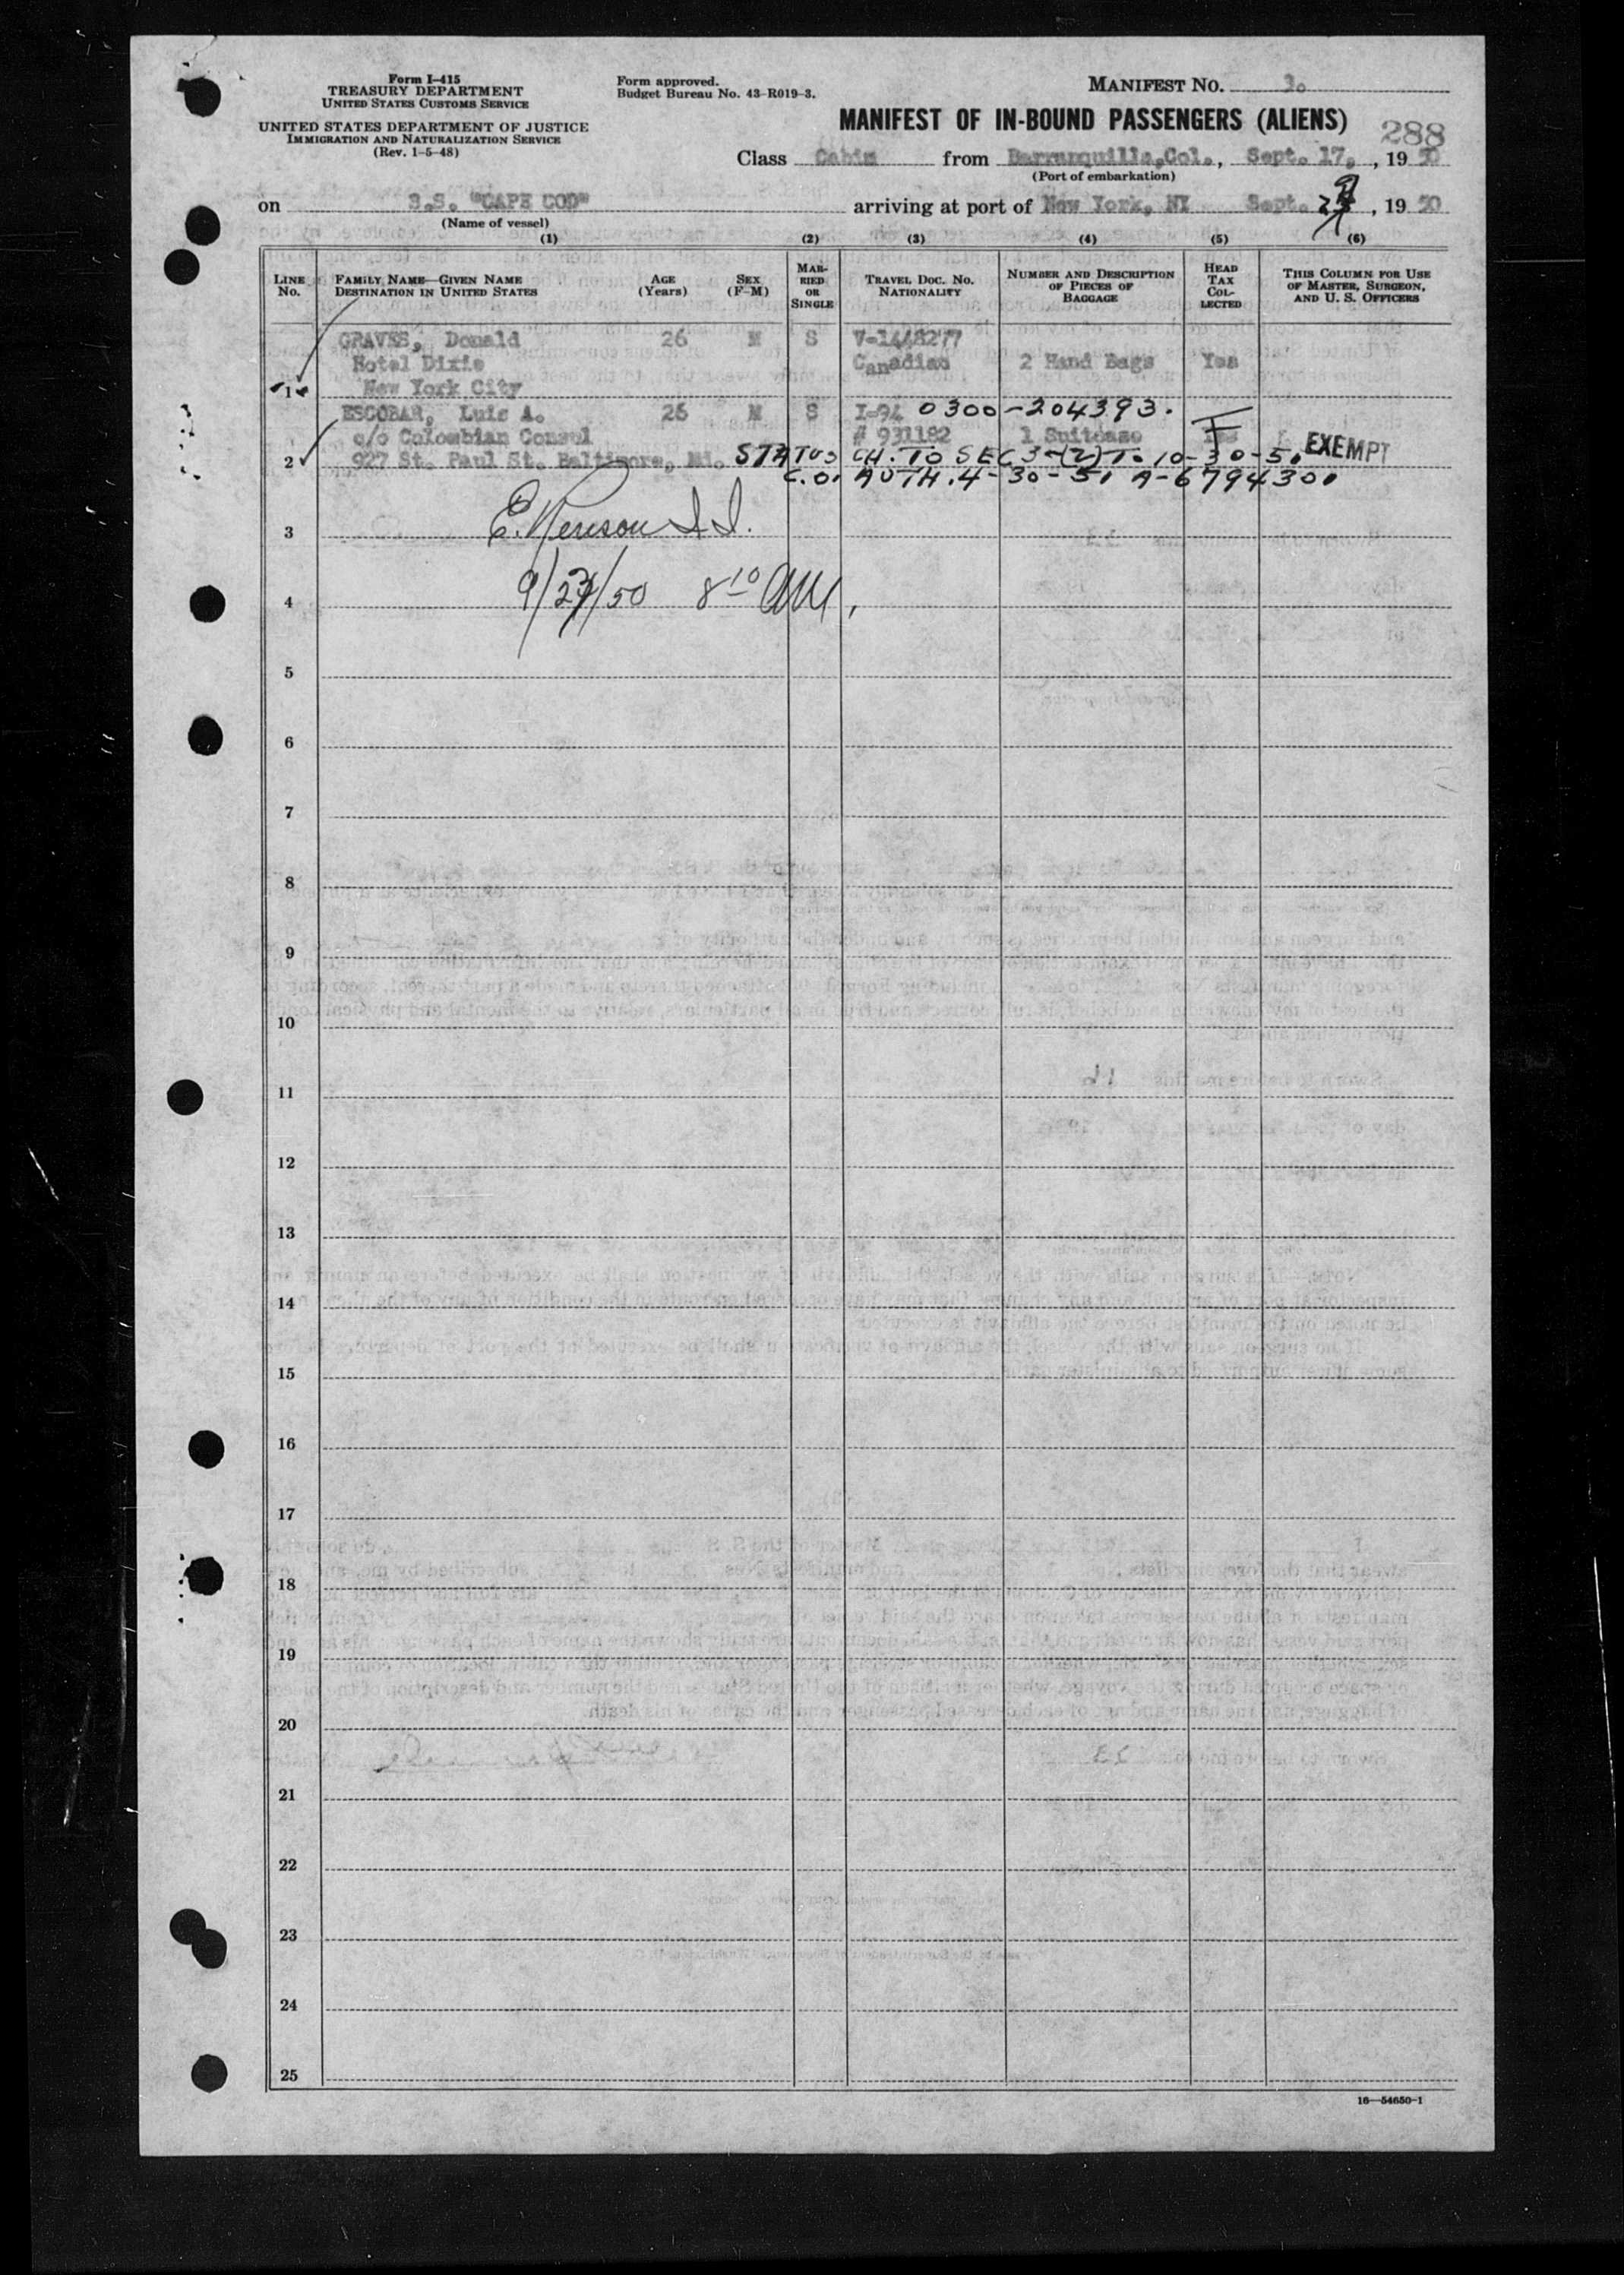 Form I-415
TREASURY DEPARTMENT
UNITED STATES CUSTOMS SERVICE
UNITED STATES DEPARTMENT OF JUSTICE
IMMIGRATION AND NATURALIZATION SERVICE
(Rev. 1-5-48)
Form approved.
Budget Bureau No. 43-R019-3.
MANIFEST NO.
MANIFEST OF IN-BOUND PASSENGERS (ALIENS)
288
Class Cabin from Barranquilla,Col., Sept. 17, , 19 50
(Port of embarkation)
on S.S. "CAPE COD" arriving at port of New York, NY Sept. , 19 50
(Name of vessel)
(1) (2) (3) (4) (5) (6)
LINE No. FAMILY NAME—GIVEN NAME DESTINATION IN UNITED STATES AGE (Years) SEX (F-M) MARRIED OR SINGLE TRAVEL DOC. NO. NATIONALITY NUMBER AND DESCRIPTION OF PIECES OF BAGGAGE HEAD TAX COLLECTED THIS COLUMN FOR USE OF MASTER, SURGEON, AND U. S. OFFICERS
GRAVES, Donald 26 M S V-1448277
Hotel Dixie Canadian 2 Hand Bags Yes
1 New York City
ESCOBAR, Luis A. 26 M S I-94 0300-204393.
c/o Colombian Consul # 931182 1 Suitcase Yes
2 927 St. Paul St. Baltimore, Md. STATUS CH. TO SEC 3-(2) T. 10-30-51 EXEMPT
C.O. AUTH. 4-30-51 A-6794301
3 E. I.I.
4 9/ /50 8 10 AM.
5
6
7
8
9
10
11
12
13
14
15
16
17
18
19
20
21
22
23
24
25
16—54650-1